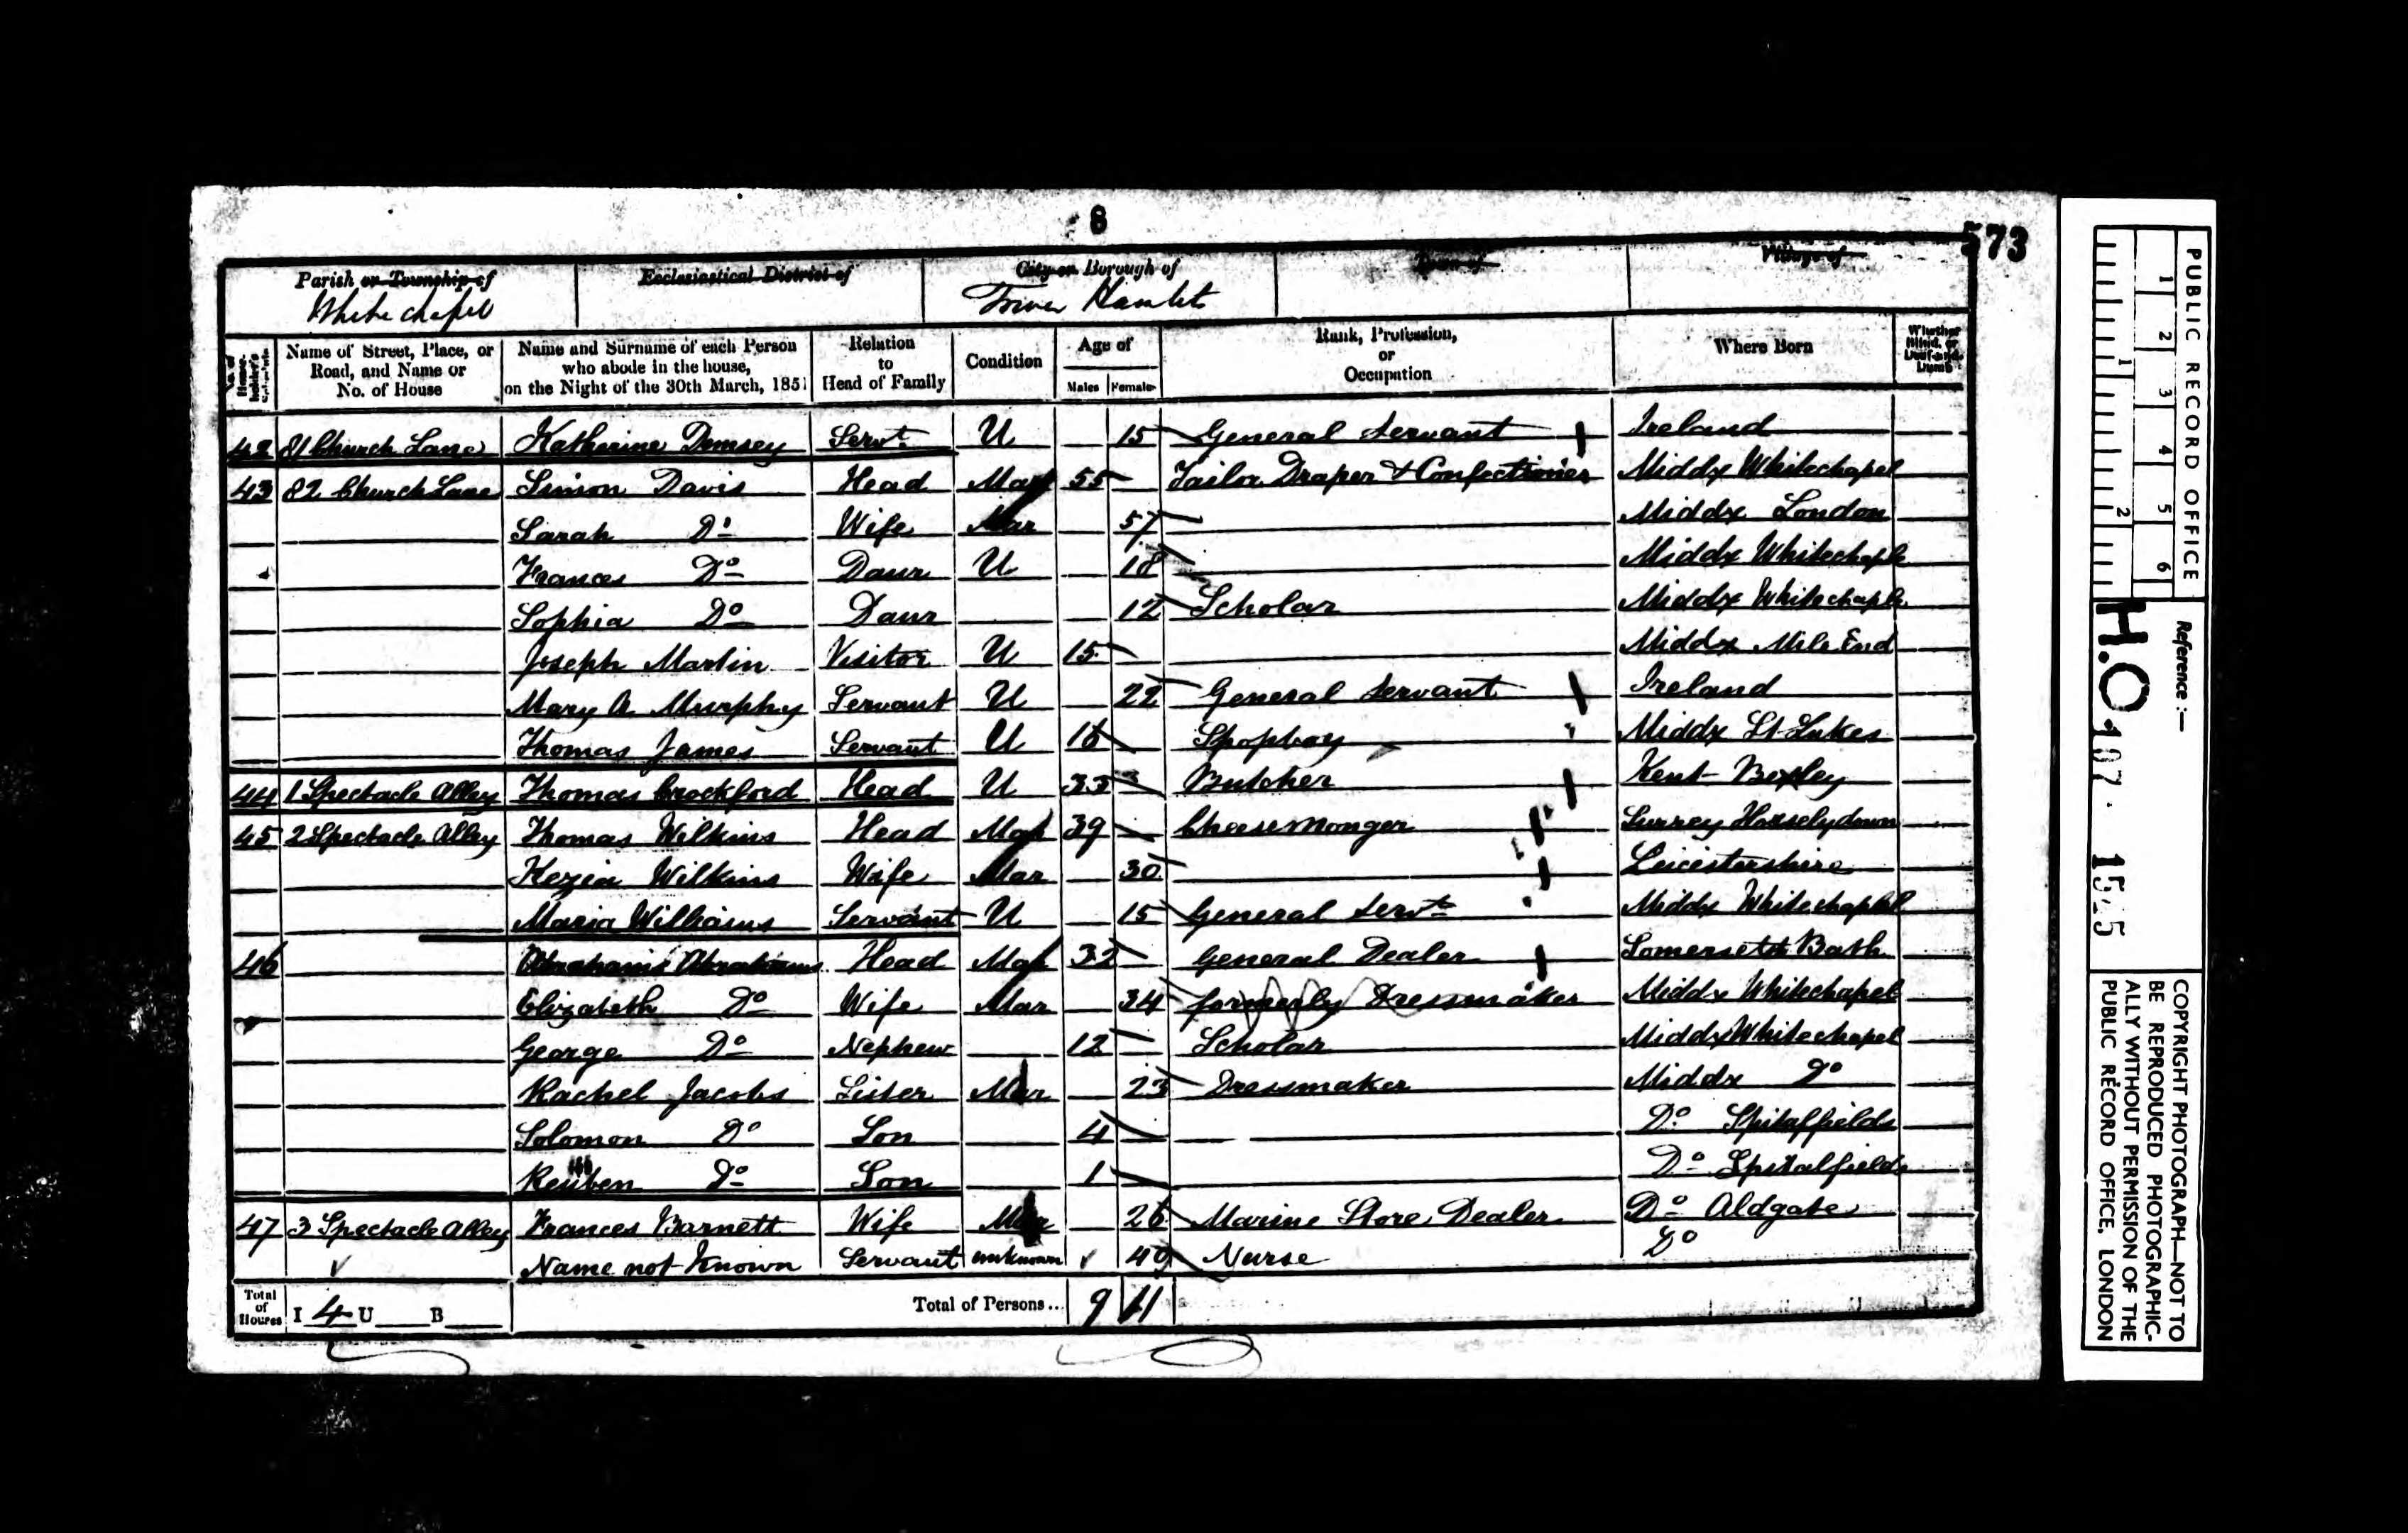 8
573
Parish or Township of
Ecclesiastical District of
City or Borough of
Town of
Village of
Whitechapel
Tower Hamlet
Name of Street, Place, or Road, and Name or No. of House
Name and Surname of each Person who abode in the house, on the Night of the 30th March, 1851
Relation to Head of Family
Condition
Age of
Males Females
Rank, Profession, or Occupation
Where Born
Whether Blind, or Deaf-and-Dumb
42 81 Church Lane Katherine Demsey Servt U 15 General Servant Ireland
43 82 Church Lane Simon Davis Head Mar 55 Tailor Draper & Confectioner Middx Whitechapel
Sarah Do Wife Mar 57 Middx London
Frances Do Daur U 18 Middx Whitechaple
Sophia Do Daur 12 Scholar Middx Whitechaple
Joseph Martin Visitor U 15 Middx Mile End
Mary A Murphy Servant U 22 General Servant Ireland
Thomas James Servant U 16 Shopboy Middx St Lukes
44 1 Spectacle Alley Thomas Crockford Head U 33 Butcher Kent Bexley
45 2 Spectacle Alley Thomas Wilkins Head Mar 39 Cheesemonger Surrey Horselydown
Kezia Wilkins Wife Mar 30 Leicestershire
Maria Williams Servant U 15 General Servt Middx Whitechapel
46 Abrahams Abrahams Head Mar 32 General Dealer Somerset Bath
Elizabeth Do Wife Mar 34 formerly Dressmaker Middx Whitechapel
George Do Nephew 12 Scholar Middx Whitechapel
Rachel Jacobs Sister Mar 23 Dressmaker Middx Do
Solomon Do Son 4 Do Spitalfields
Reuben Do Son 1 Do Spitalfields
47 3 Spectacle Alley Frances Barnett Wife Mar 26 Marine Store Dealer Do Aldgate
Name not Known Servant unknown 40 Nurse Do
Total of Houses I 4 U B Total of Persons... 9 11
PUBLIC RECORD OFFICE
1 2 3 4 5 6
1 2
Reference :-
H.O. 107. 1545
COPYRIGHT PHOTOGRAPH—NOT TO
BE REPRODUCED PHOTOGRAPHIC-
ALLY WITHOUT PERMISSION OF THE
PUBLIC RECORD OFFICE, LONDON